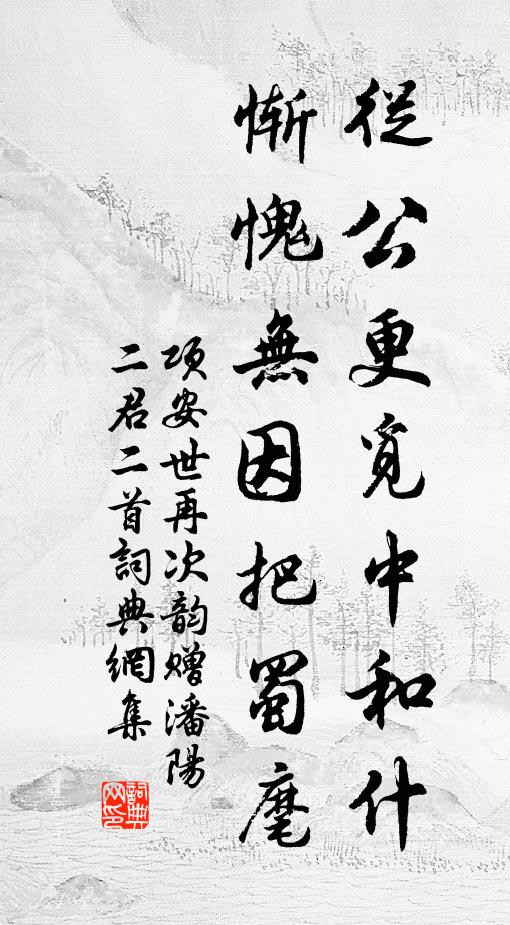 從公更覓中和什
慚愧無因把蜀麾
項安世再次韵贈潘陽
二君二首詞典網集
詞典
网印